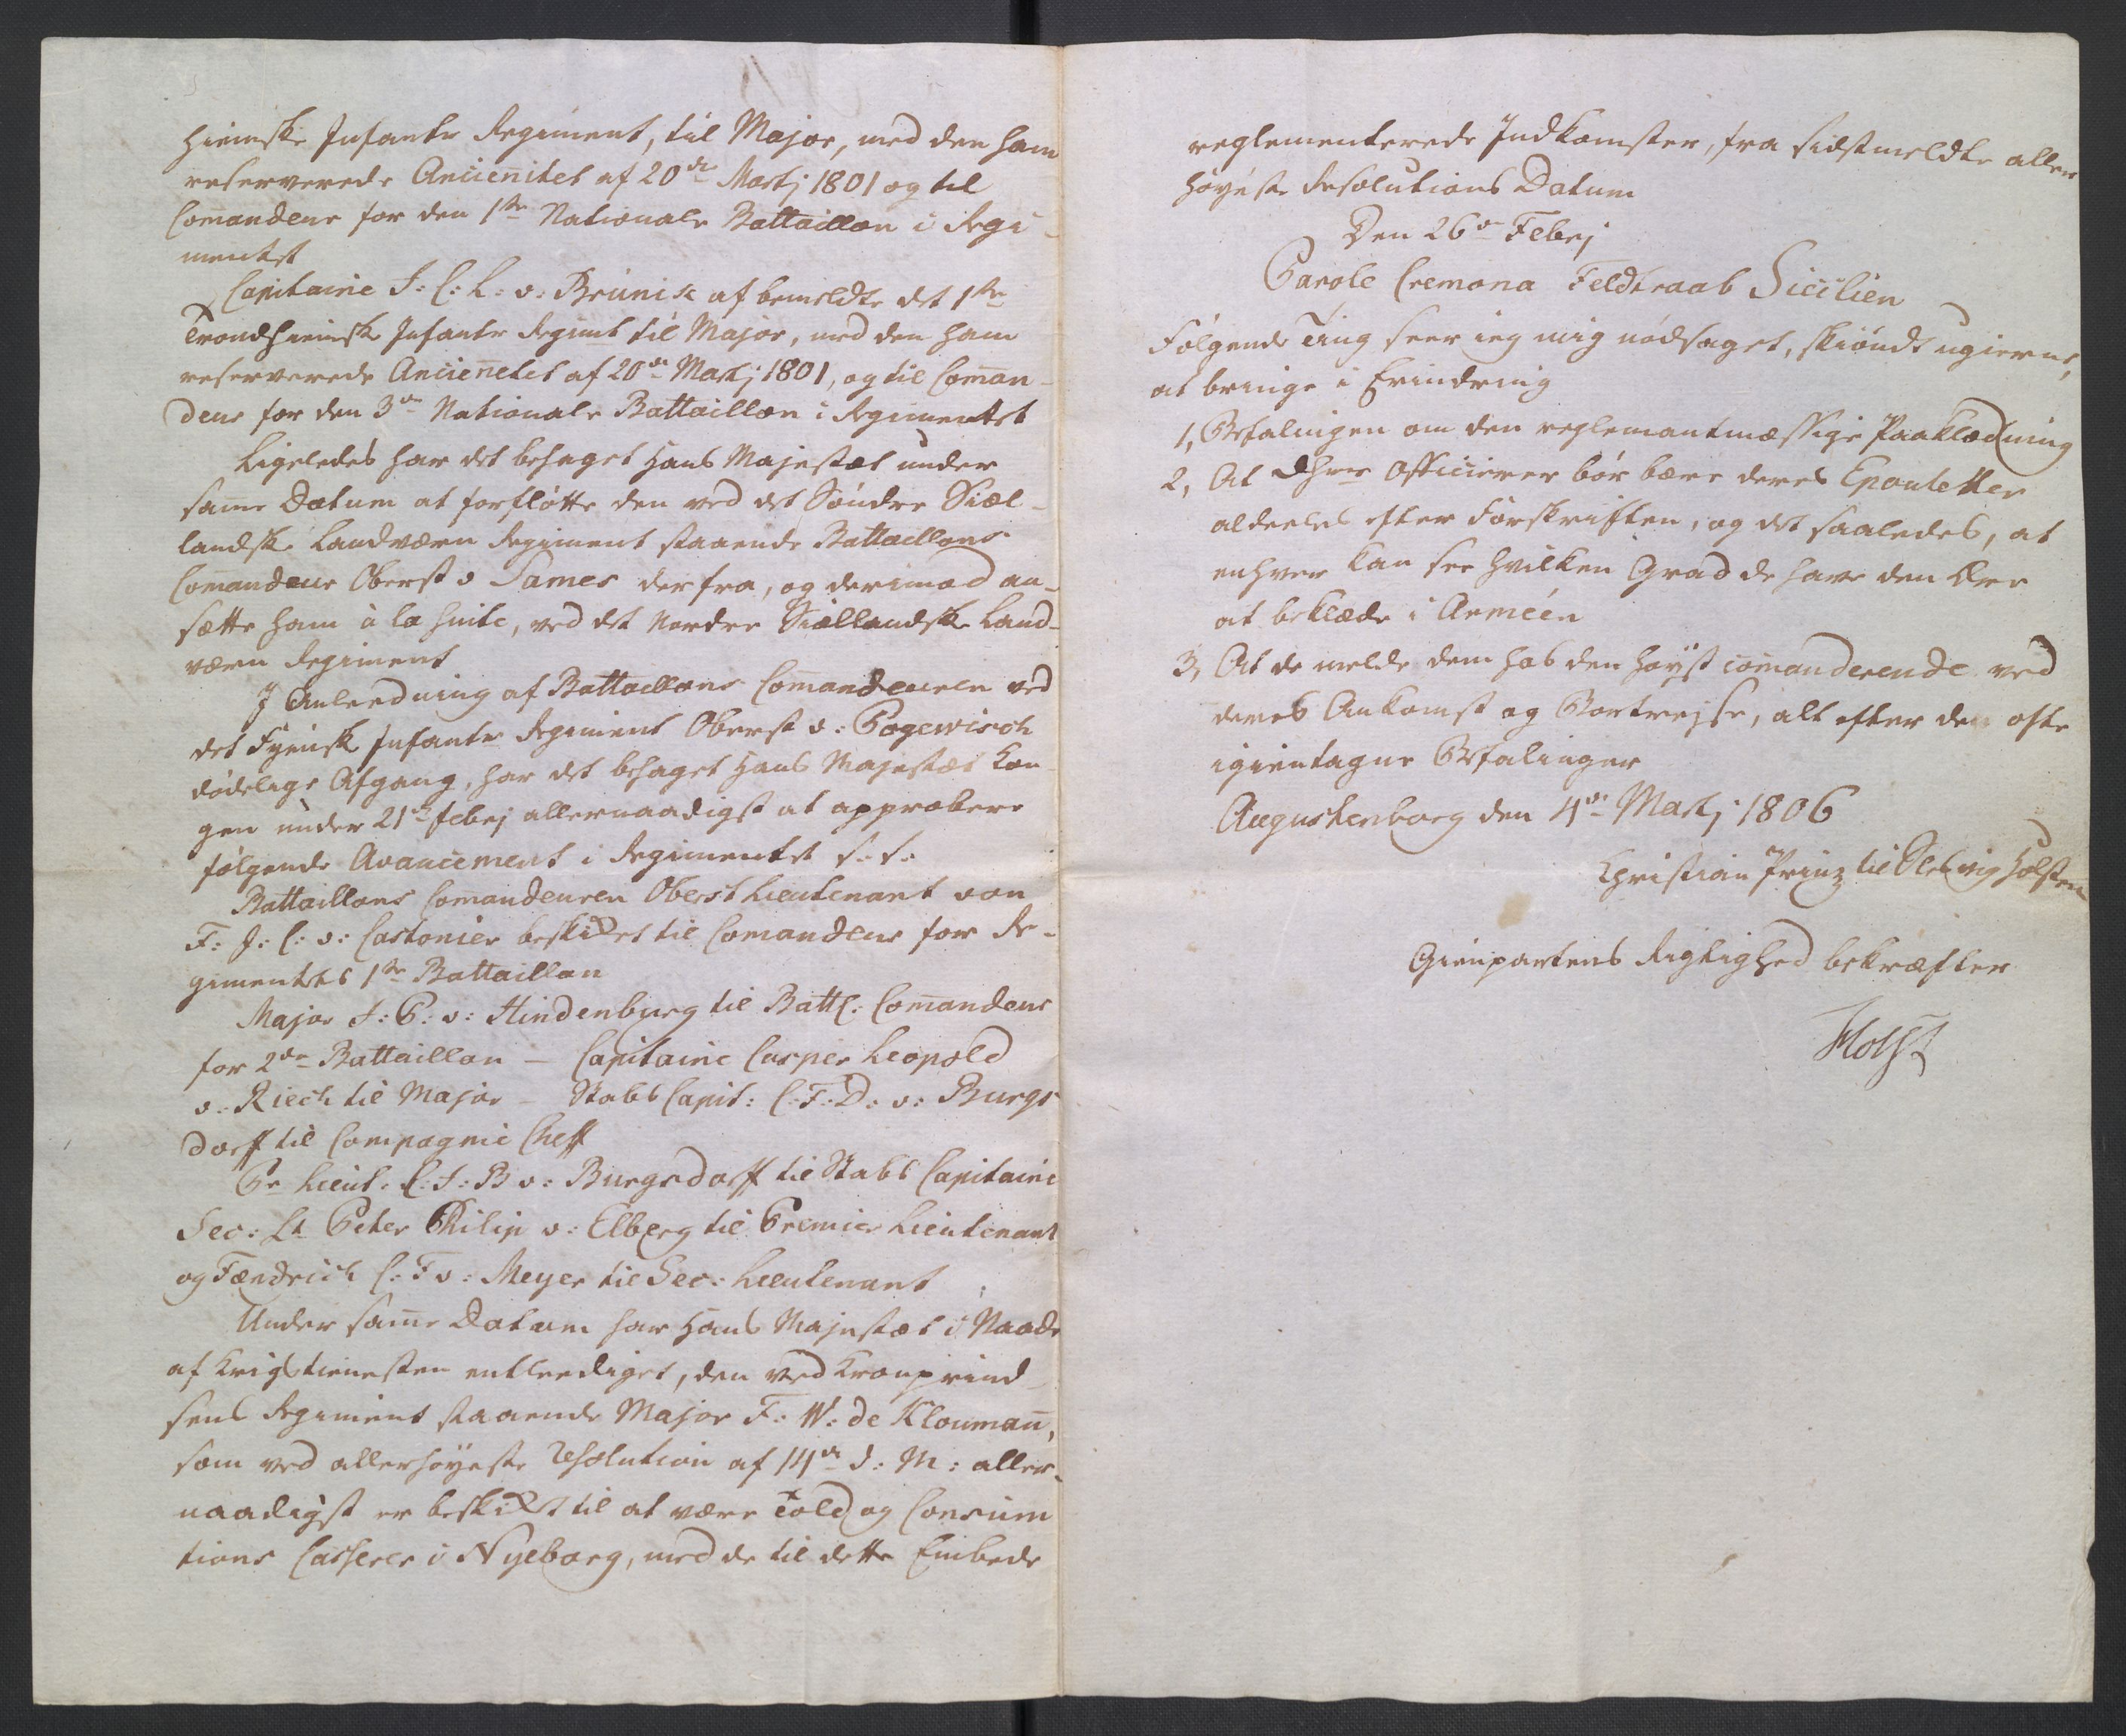 hiemske Infanterie Regiment, til Major, med den ham
reserverede Anciennitet af 20de Martj 1801 og til
Com̄andeur for den 1ste Nationale Battaillon i Regi-
mentet
Capitaine J: C: L: v: Brünick af bemeldte det 1ste
Trondhiemske Infanterie Regimt til Major, med den ham
reserverede Anciennetet af 20de Martj 1801, og til Com̄an-
deur for den 3die Nationale Battaillon i Regimentet
Ligeledes har det behaget Hans Majestæt under
sam̄e Datum at forfløtte den ved det Søndre Siæl-
landske Landværn Regiment staaende Battaillons
Com̄andeur Oberst v James derfra, og derimod an-
sætte ham à la Suite, ved det Nordre Siællandske Land-
værn Regiment
I Anledning af Battaillons Com̄andeuren ved
det Fyensk Infanterie Regiment Oberst v: Pogewisch
dødelige Afgang, har det behaget Hans Majestæt Kon
gen under 21de Febrj allernaadigst at approbere
følgende Avancement i Regimentet s. s.
Battaillons Com̄andeuren Oberst Lieutenant von
F: J: C: v: Castonier beskikket til Com̄andeur for Re-
gimentets 1ste Battaillon
Major J: P: v: Hindenburg til Battl: Com̄andeur
for 2den Battaillon – Capitaine Casper Leopold
v: Riech til Major – Stabs Capit: C: F: D: v: Burgs
dorff til Compagnie Cheff
Pr Lieut: C: J: B v: Burgsdorff til Stabs Capitaine
Sec: Lt Peter Philip v: Elberg til Premier Lieutenant
og Fændrich C: F v: Meyer til Sec: Lieutenant
Under sam̄e Datum har Hans Majestæt i Naade
af Krigstienesten entlediget, den ved Kronprind
sens Regiment staaende Major F: W: de Kloumañ,
som ved allerhøyeste Resolution af 14de d: M: aller-
naadigst er beskikket til at være Told og Consum
tions Casserer i Nyeborg, med de til dette Embede
reglementerede Indkomster, fra sidstmeldte aller
høyeste Resolutions Datum
Den 26de Febrj
Parole Cremona Feldtraab Sicilien
Følgende Ting seer ieg mig nødsaget, skiøndt ugierne,
at bringe i Erindring
1, Befalingen om den reglemantmæssige Paaklædning
2, At Dhrr Officierer bør bære deres Epouletter
aldeeles efter Forskriften, og det saaledes, at
enhver kan see hvilken Grad de have den Ære
at beklæde i Arméen
3, At de melde dem hos den høyst com̄anderende ved
deres Ankomst og Bortreyse, alt efter de ofte
igientagne Befalinger
Augustenborg den 4de Martj 1806
Christian Prinz til Slesvig Holsten
Gienpartens Rigtighed bekræfter
Holst